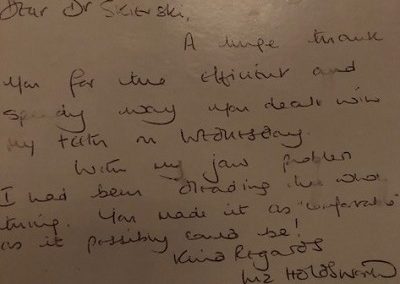 Dear Dr Skierski,
A huge thank
you for the efficient and
speedy way you dealt with
my teeth on Wednesday.
With my jaw problem
I had been dreading the whole
thing. You made it as "comfortable"
as it possibly could be!
Kind Regards
Liz Holdsworth